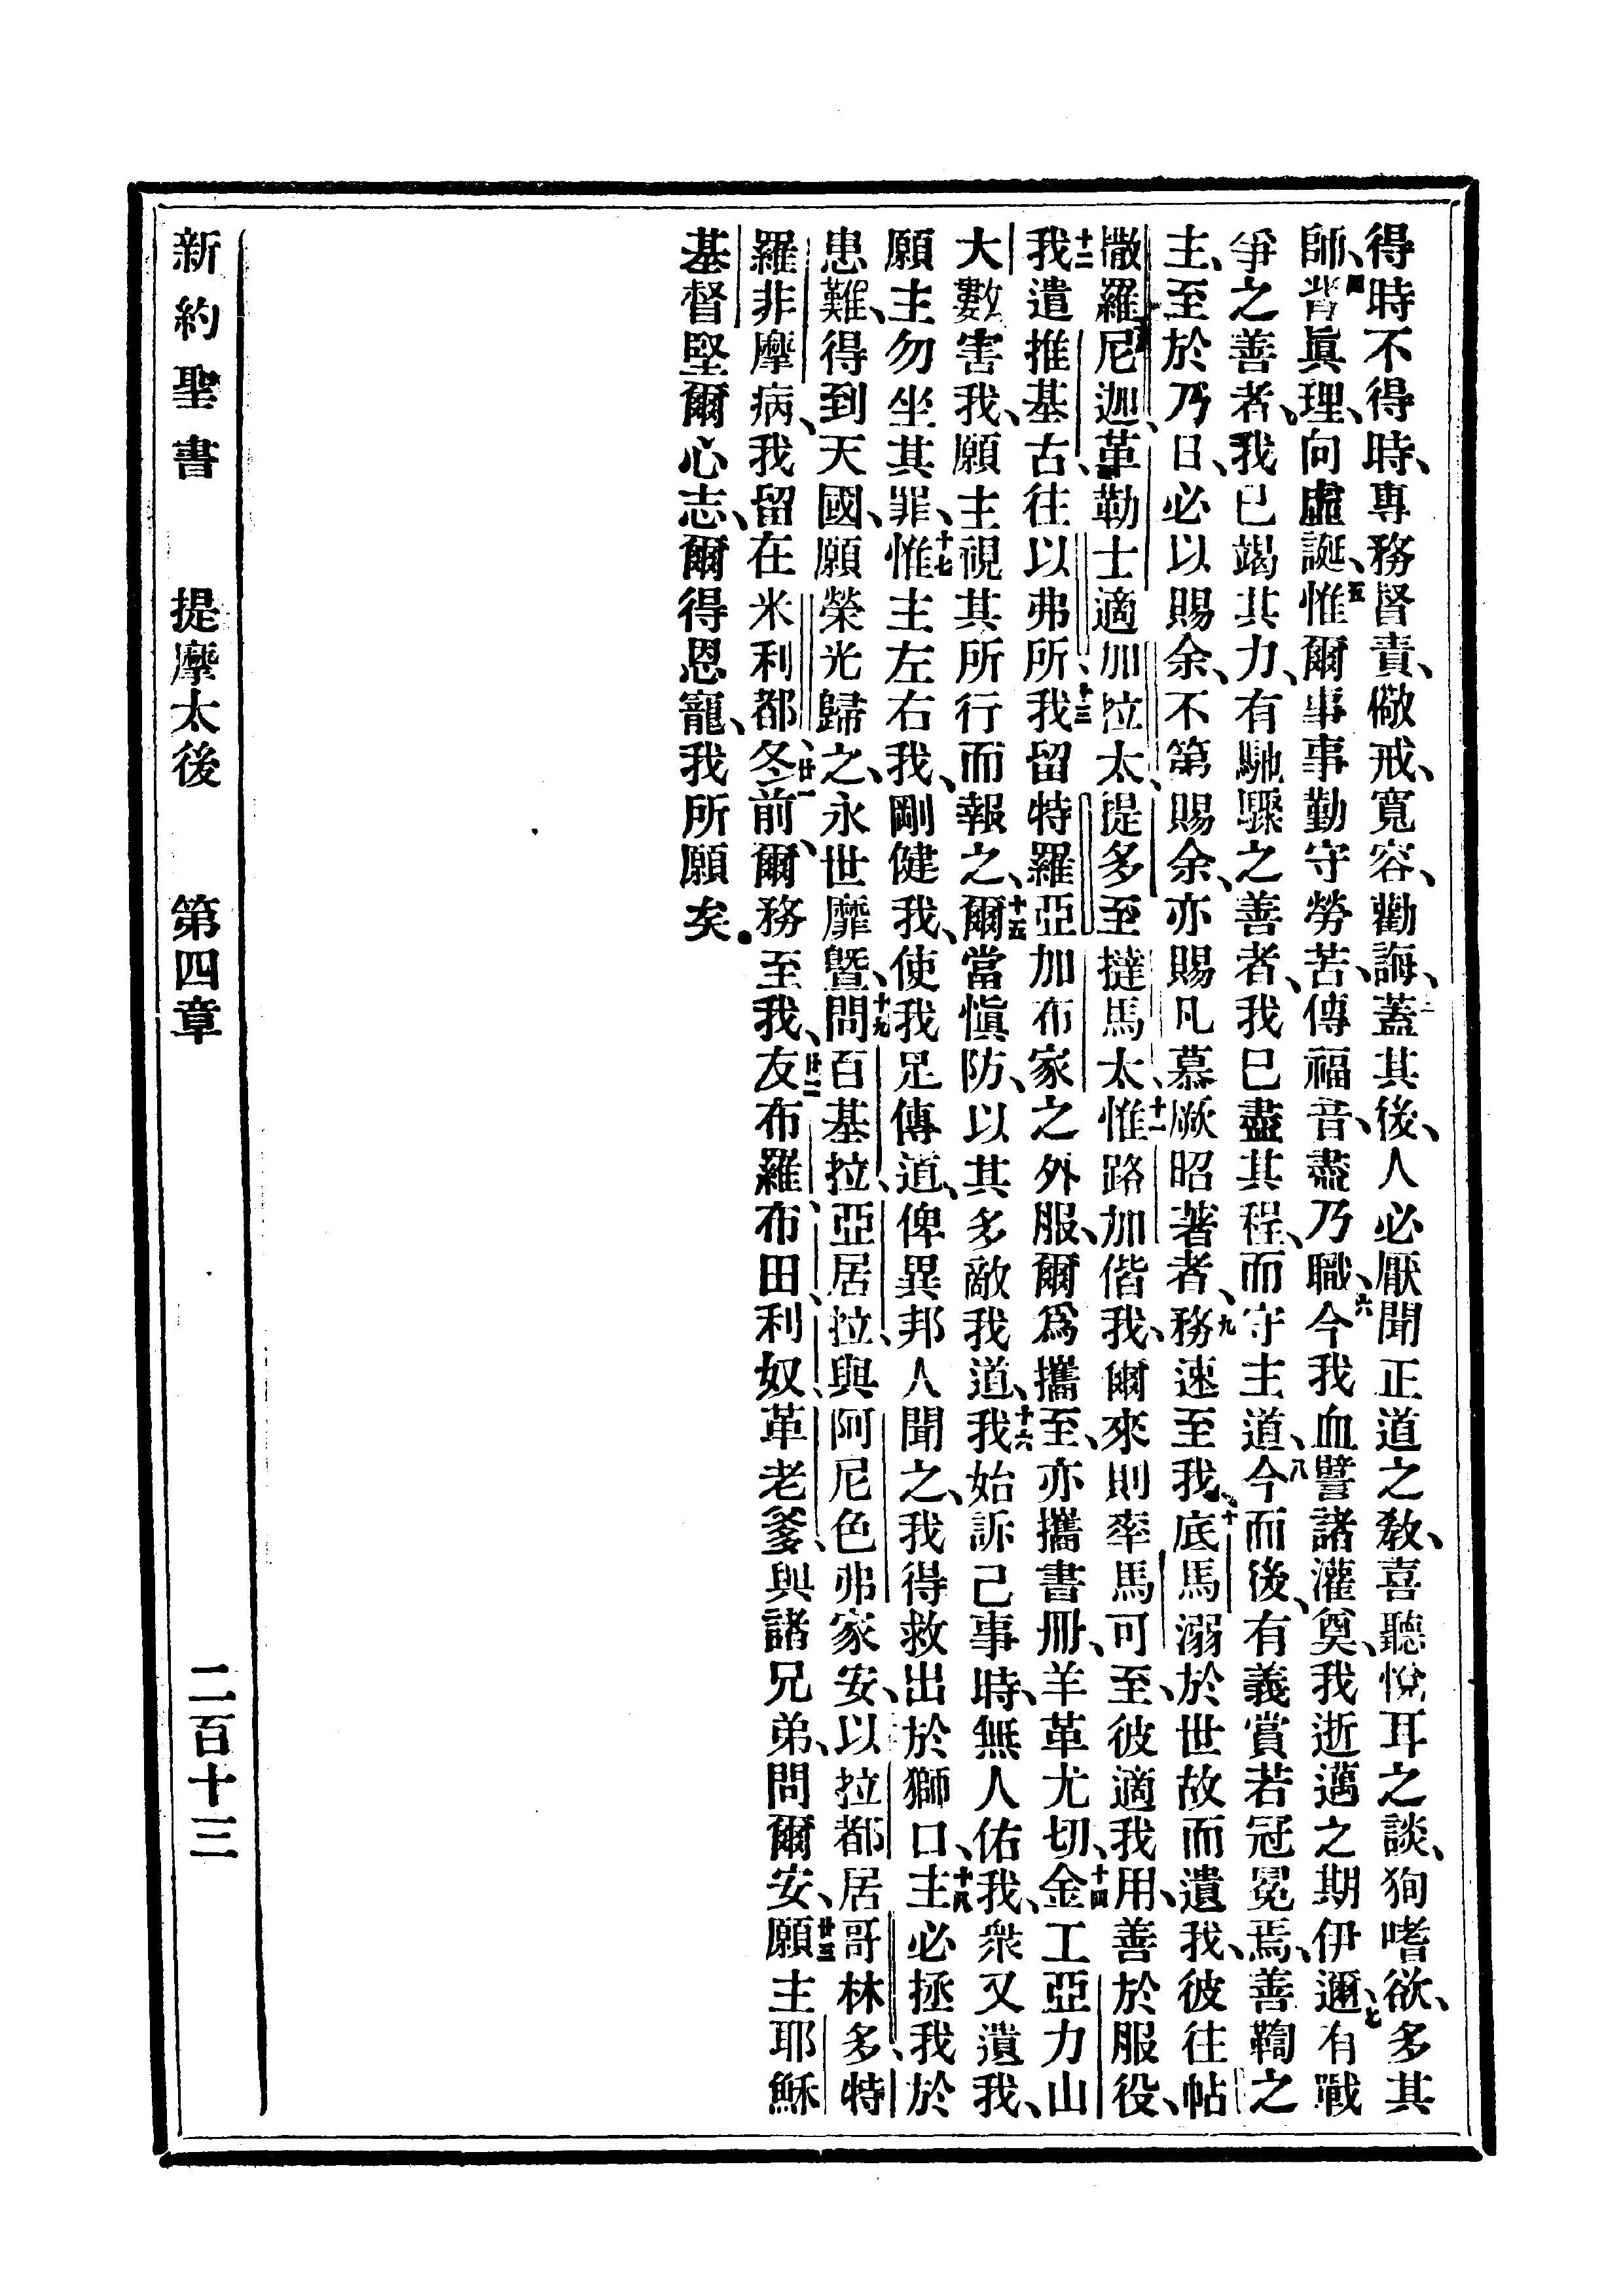 得時不得時、專務督責、儆戒、寬容、勸誨、三蓋其後、人必厭聞正道之教、喜聽悅耳之談、狥嗜欲、多其
師、四背眞理、向虛誕、五惟爾事事勤守勞苦、傳福音、盡乃職、六今我血譬諸灌奠、我逝邁之期伊邇、七有戰
爭之善者、我已竭其力、有馳驟之善者、我已盡其程、而守主道、八今而後、有義賞若冠冕焉、善鞫之
主、至於乃日、必以賜余、不第賜余、亦賜凡慕厥昭著者、九務速至我、十底馬溺於世故而遺我、彼往帖
撒羅尼迦、革勒士適加拉太、提多至撻馬太、十一惟路加偕我、爾來則率馬可至、彼適我用、善於服役、
十二我遣推基古、往以弗所、十三我留特羅亞加布家之外服、爾爲攜至、亦攜書冊、羊革尤切、十四金工亞力山
大數害我、願主視其所行而報之、十五爾當愼防、以其多敵我道、十六我始訴己事時、無人佑我、衆又遺我、
願主勿坐其罪、十七惟主左右我、剛健我、使我足傳道、俾異邦人聞之、我得救出於獅口、十八主必拯我於
患難、得到天國、願榮光歸之、永世靡曁、十九問百基拉、亞居拉、與阿尼色弗家安、以拉都居哥林多、特
羅非摩病、我留在米利都、廿一冬前、爾務至我、廿二友布羅、布田、利奴、革老爹、與諸兄弟、問爾安、廿三願主耶穌
基督堅爾心志、爾得恩寵、我所願矣。
新約聖書 提摩太後 第四章 二百十三